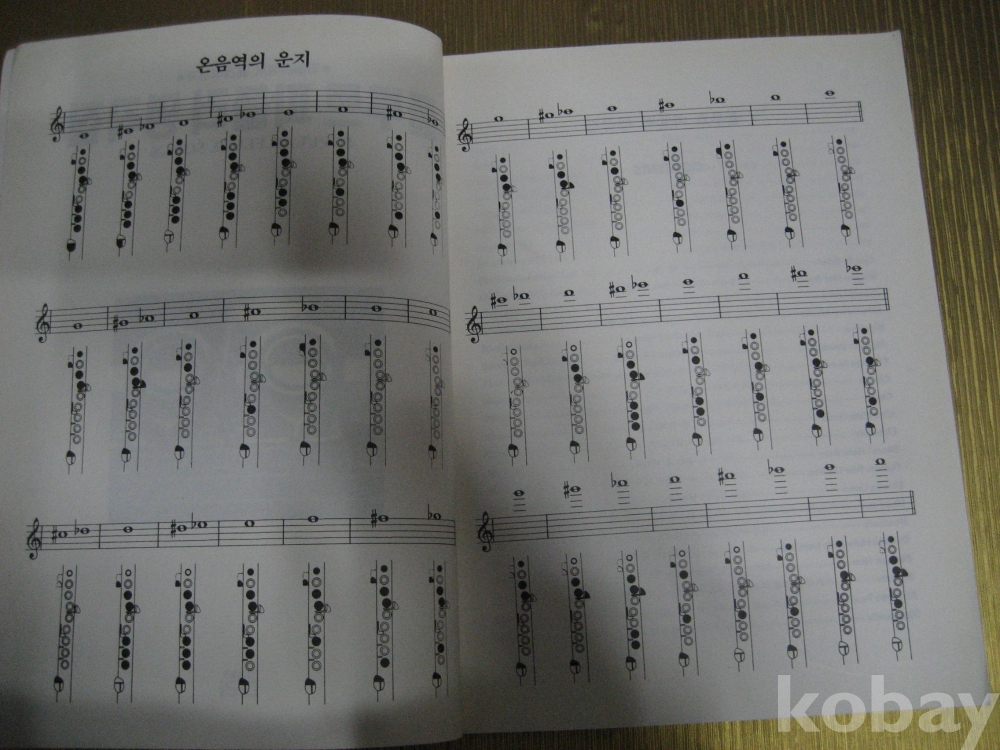 온음역의 운지
kobay